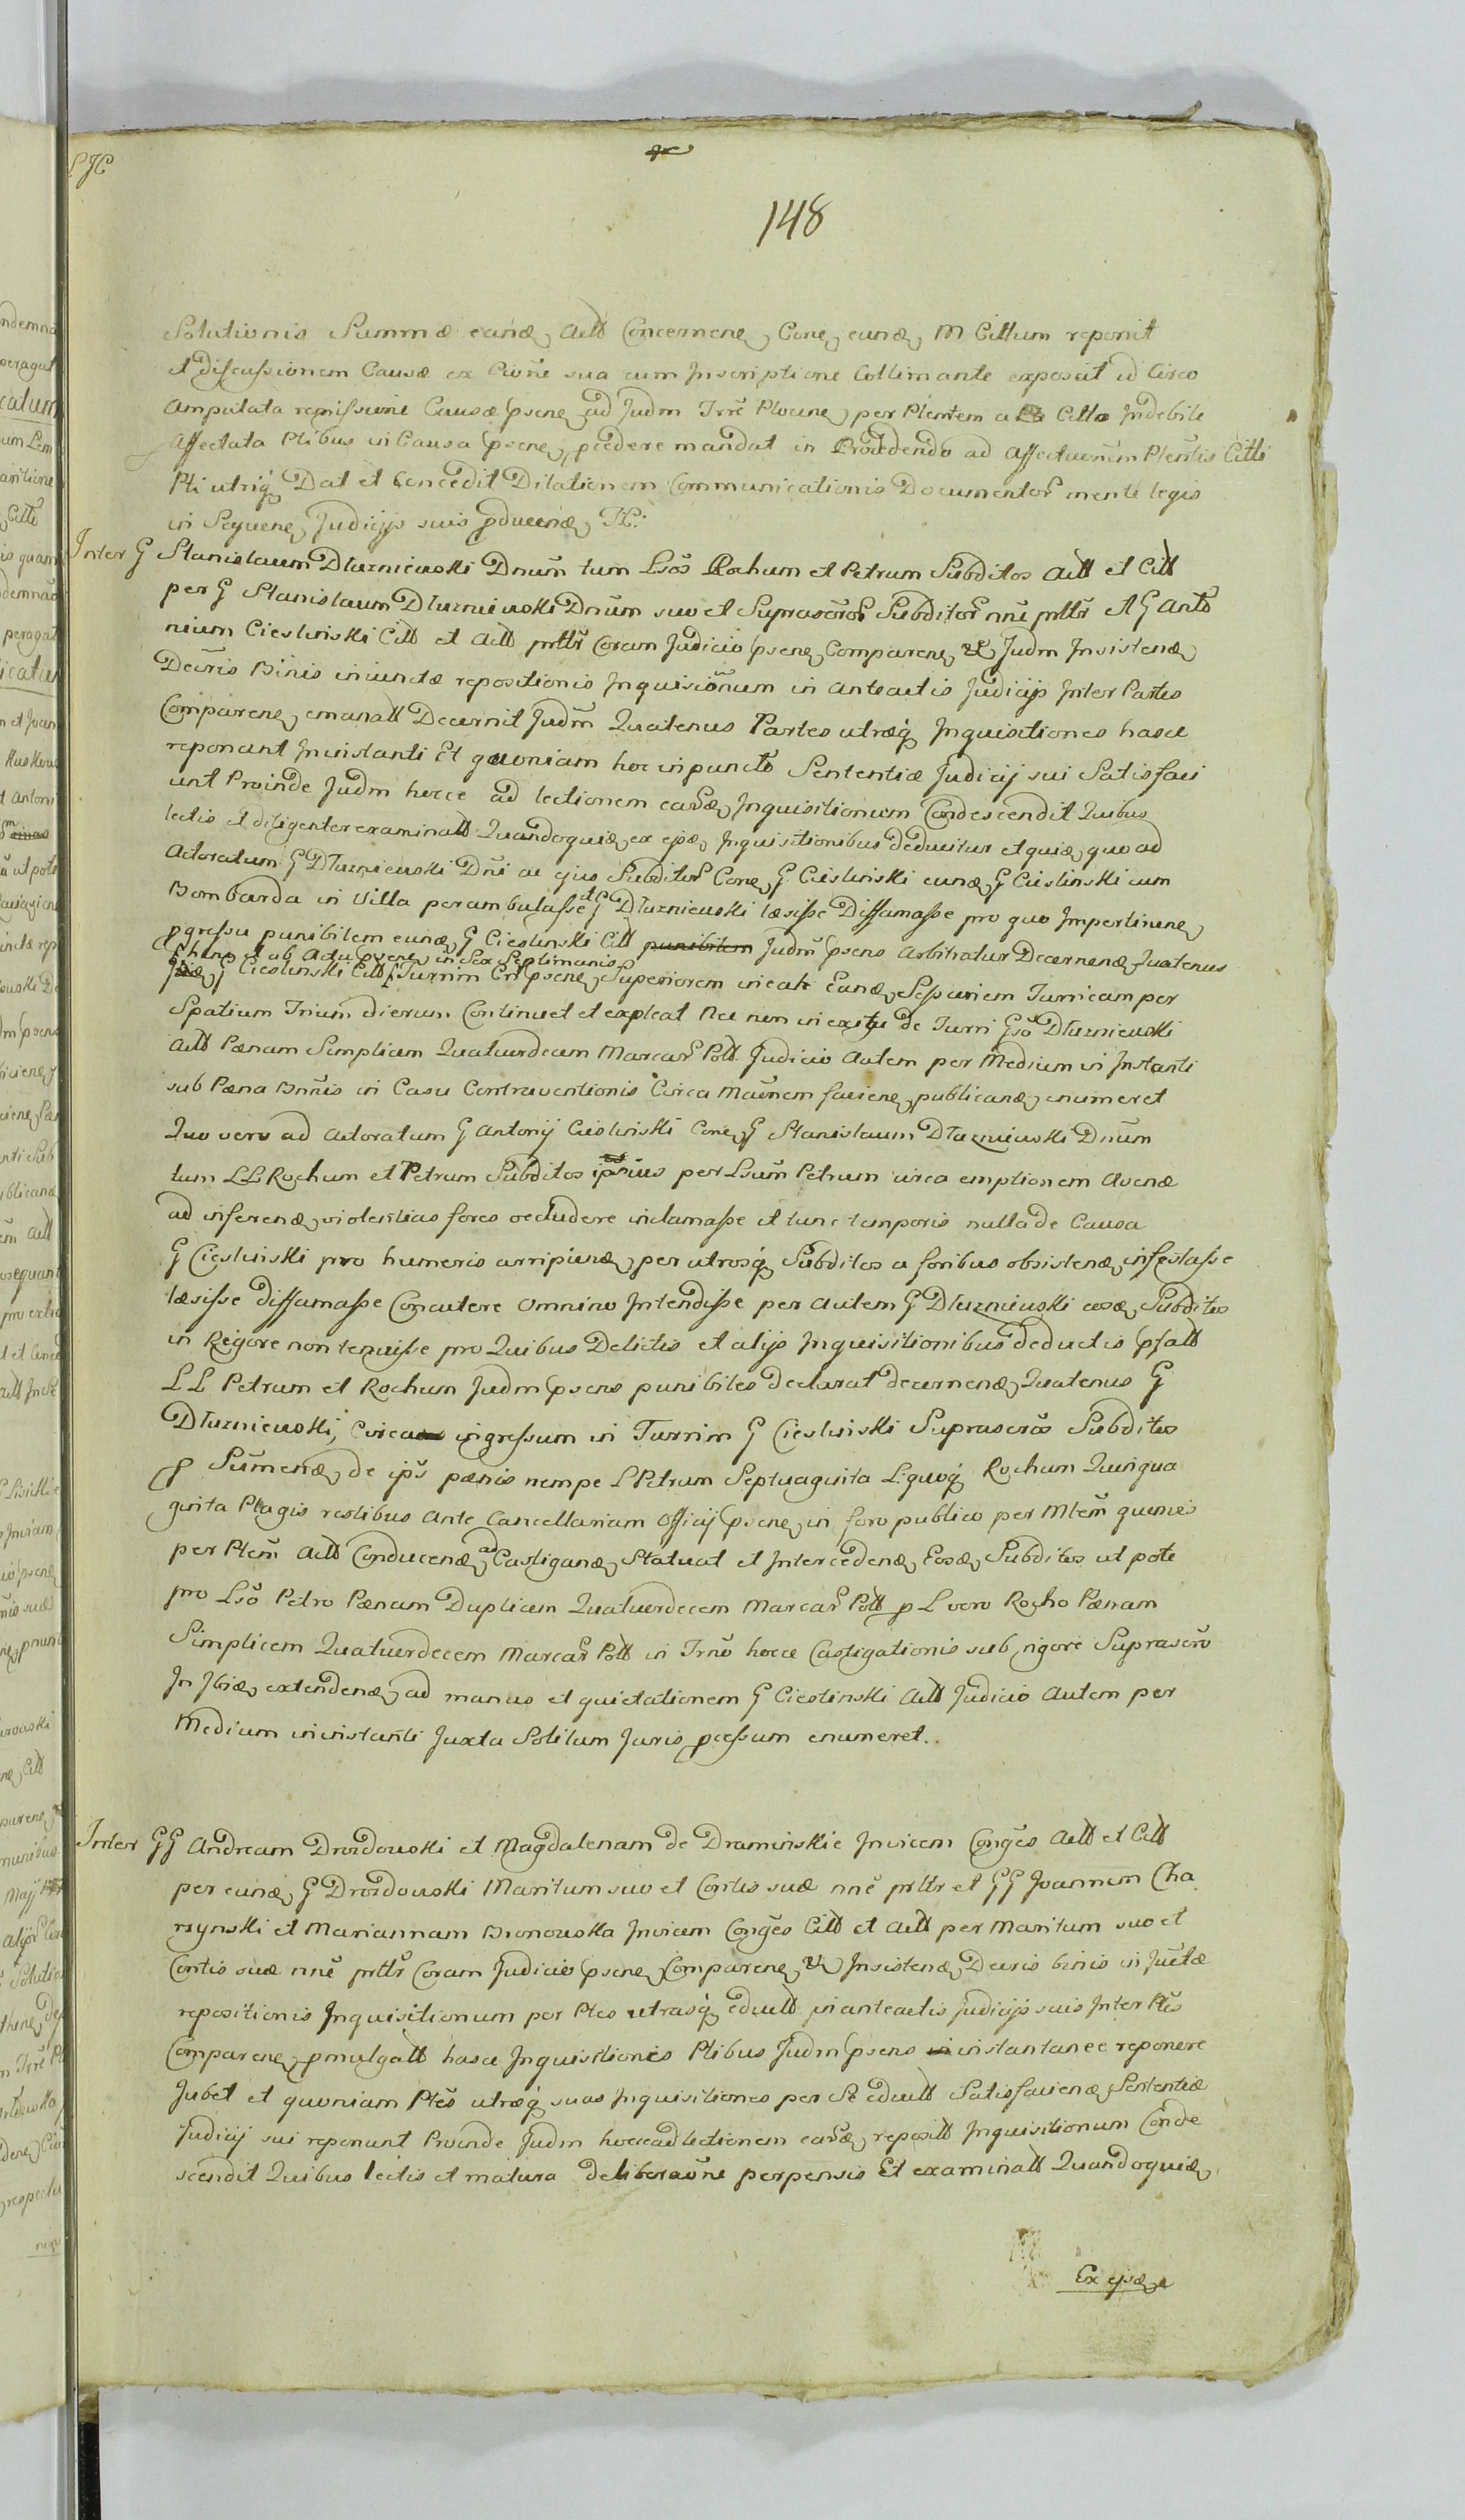 148
Solutionis Summæ eand Actt Concernen Con eund M Cittum reponit
et discussionem Causæ ex Cione sua cum Inscriptione Collimante exposcit id Circo
Amputata remissione Causæ psen ad Judm Trre Plocen per Plentem a Citto Indebite
Affectata Ptibus in Causa psen pcedere mandat in Procedendo ad Affectaonem Plentis Citti
Pti utriq Dat et Concedit Dilationem Communicationis Documentor mente legis
in Sequen Judicijs suis pducend
Inter G Stanislaum Dluzniewski Dnum tum Lsos Rochum et Petrum Subditos Actt et Citt
per G Stanislaum Dluzniewski Dnum suo et Suprascror Subditor nne prttr et G Anto
nium Ciesliński Citt et Actt prttr Coram Judicio psen Comparen Judm Insistend
Decris Binis iniunctæ repositionis Inquisionum in anteactis Judicijs Inter Partes
Comparen emanatt Decernit Judm Quatenus Partes utræq Inquisitiones hasce
reponant Ininstanti Et quoniam hoc inpuncto Sententiæ Judicij sui Satisfaci
unt Proinde Judm hocce ad lectionem earnd Inquisitionum Condescendit Quibus
lectis et diligenter examinatt Quandoquid ex ejsd Inquisitionibus deducitur et quid quo ad
Actoratum G Dluzniewski Dni ac ejus Subditor Con G Ciesliński eund G Ciesliński cum
Bombarda in Villa perambulasse et G Dluzniewski læsisse Diffamasse pro quo Impertinen
pgressu punibilem eund G Ciesliński Citt punibilem Judm psens Arbitratur Decernend Quatenus
hinc et ab Actu psen in Sex Septimanis
G Ciesliński Citt Turrim Cri psen Superiorem ineat Eand Sessionem Turricam per
Spatium Trium dierum Continuet et expleat Nec non in exitu de Turri Gso Dluzniewski
Actt Pænam Simplicem Quatuordecem Marcar Poll Judicio Autem per Medium in Instanti
sub Pæna Bnnis in Casu Contraventionis Circa Maonem facien publicand enumeret
Quo vero ad Actoratum G Antonij Ciesliński Con G Stanislaum Dluzniewski Dnum
tum LL Rochum et Petrum Subditos ipsius per Lsum Petrum circa emptionem Avenæ
ad inferend violentias fores occludere inclamasse et tunc temporis nulla de Causa
G Ciesliński pro humeris arripiend per utrosq Subditos a foribus obsistend infestasse
læsisse diffamasse Concutere Omnino Intendisse per Autem G Dluzniewski eosd Subditos
in Rigore non tenuisse pro Quibus Delictis et alijs Inquisitionibus deductis psatt
LL Petrum et Rochum Judm psens punibiles declarat decernend Quatenus G
Dluzniewski, Circa ingressum in Turrim G Ciesliński Suprascros Subditos
p Sumend de ips pænis nempe L Petrum Septuaginta L quoq Rochum Quinqua
ginta Plagis restibus Ante Cancellariam Officij psen in foro publico per Mtem
per Ptem Actt Conducend ad Castigand Statuat et Intercedend Eosd Subditos ut pote
pro Lso Petro Pænam Duplicem Quatuordecem Marcar Poll p L vero Rocho Pænam
Simplicem Quatuordecem Marcar Poll in Trno hocce Castigationis sub rigore Suprascro
In extendend ad manus et quietationem G Ciesliński Actt Judicio Autem per
Medium ininstanti Juxta Solitum Juris pcessum enumeret.
Inter GG Andream Drozdowski et Magdalenam de Dramińskie Invicem Conges Actt et Citt
per eund G Drozdowski Maritum suo et Contis suæ nne prttr et GG Joannem Cha
rzynski et Mariannam Bronowska Invicem Conges Citt et Actt per Maritum suo et
Contis suæ nne prttr Coram Judicio psen Comparen Insistend Decris binis in Junctæ
repositionis Inquisitionum per Ptes utrasq eductt in anteactis Judicijs suis Inter Ptes
Comparen pmulgatt hasce Inquisitiones Ptibus Judm psens instantanee reponere
Jubet et quoniam Ptes utræq suas Inquisitiones per Se eductt Satisfaciend Sententiæ
Judicij sui reponunt Proinde Judm hocce ad lectionem earnd repositt Inquisitionum Conde
scendit Quibus lectis et matura deliberaone perpensis Et examinatt Quandoquid
Ex ejsd